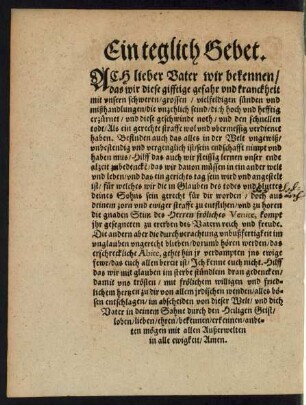 Ein teglich Gebet.
ACH lieber Vater wir bekennen/
das wir diese gifftige gefahr vnd kranckheit
mit vnsern schweren/grossen / vielfeltigen sünden vnd
mißhandlungen/die vnzehlich seind/dich hoch vnd hefftig
erzürnet/ vnd diese geschwinde noth/ vnd den schnellen
todt/Als ein gerechte straffe wol vnd vbermessig verdienet
haben. Befinden auch das alles in der Welt vngewiß/
vnbestendig vnd vergenglich ist/sein endschafft nimpt vnd
haben mus/Hilff das auch wir fleissig lernen vnser ende
alzeit zubedenck/das wir dauon müssen in ein ander welt
vnd leben/vnd das ein gerichts tag sein wird vnd angestelt
ist/ für welches wir die im Glauben des todts vnd bluttes
deines Sohns sein gerecht für dir worden / hoch aus
deinem zorn vnd einiger straffe zu entfliehen/vnd zu horen
die gnaden Stim des Herren fröliches Venite, kompt
ihr gesegneten zu ererben des Vatern reich vnd freude.
Die andern aber die durch verachtung vnbußfertigkeit im
vnglauben vngerecht blieben/dorumb hören werden/das
erschreckliche Abite, gehet hin jr verdampten jns ewige
fewr/das euch allen bereit ist/ Ich kenne euch nicht. Hilff
das wir mit glauben im sterbe stündlein dran gedencken/
damit vns trösten / mit frölichem willigen vnd fried-
lichem hertzen zu dir von allem jrdischen wenden/alles bö-
sen entschlagen/ im abscheiden von dieser Welt/ vnd dich
Vater in deinem Sohne durch den Heiligen Geist/
loben/lieben/ehren/bekennen/erkennen/anbe-
ten mögen mit allen Außerwelten
in alle ewigkeit/ Amen.